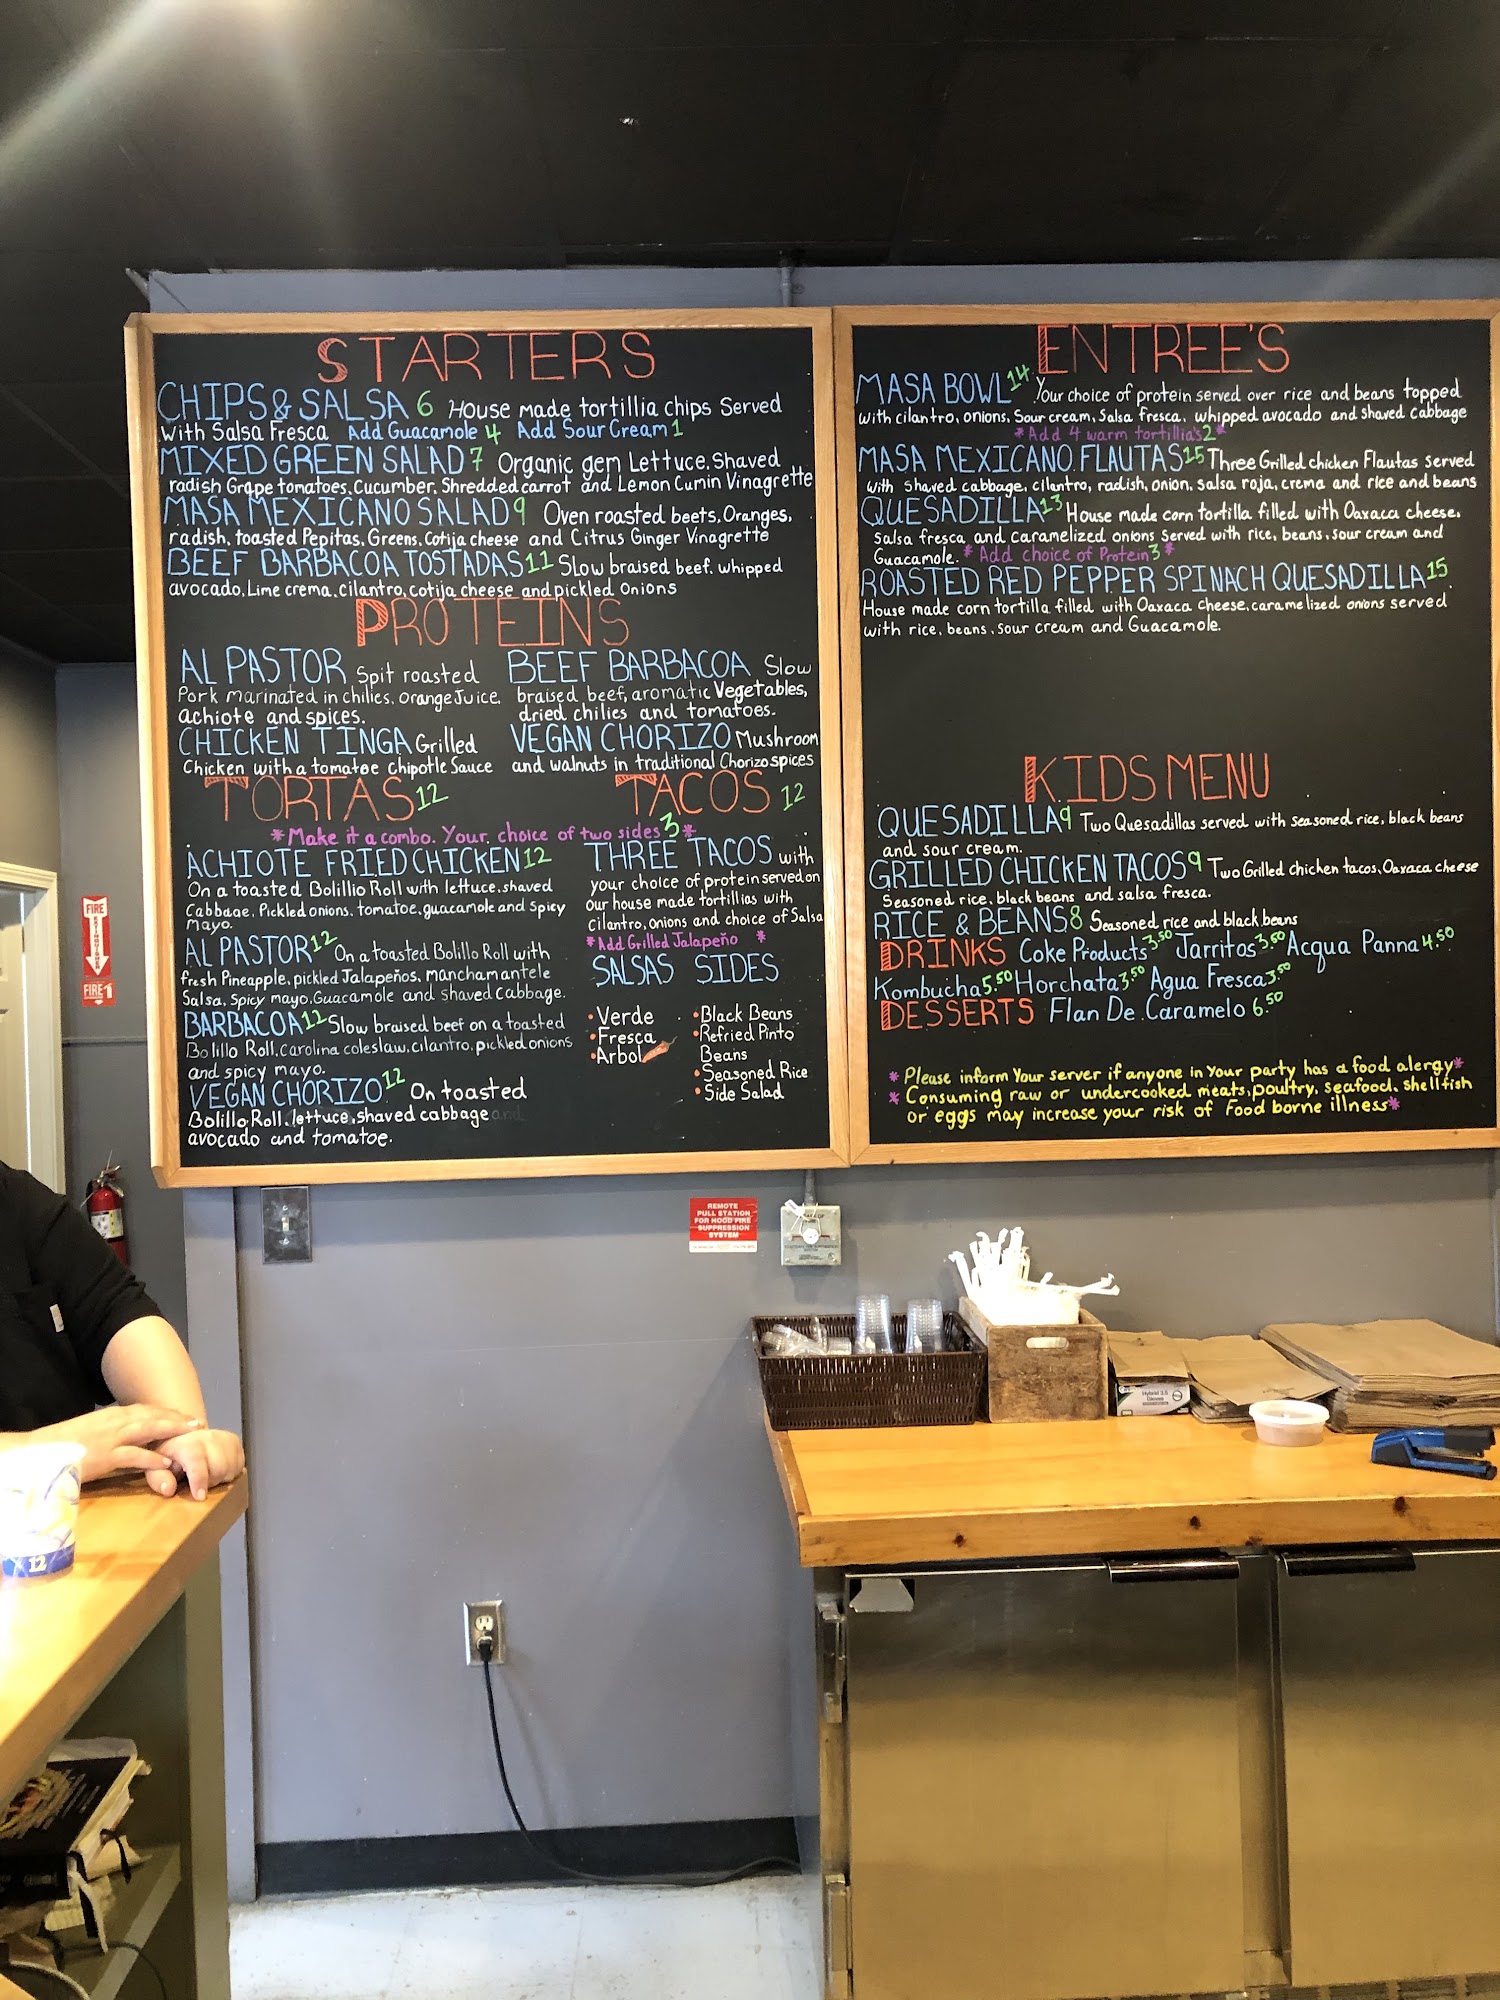 STARTERS
CHIPS & SALSA 6 House made tortillia chips Served
With Salsa Fresca Add Guacamole 4 Add Sour Cream 1
MIXED GREEN SALAD 7 Organic gem Lettuce, Shaved
radish Grape tomatoes, Cucumber, Shredded carrot and Lemon Cumin Vinagrette
MASA MEXICANO SALAD 9 Oven roasted beets, Oranges,
radish, toasted Pepitas, Greens, Cotija cheese and Citrus Ginger Vinagrette
BEEF BARBACOA TOSTADAS 11 Slow braised beef, whipped
avocado, Lime crema, cilantro, cotija cheese and pickled onions
PROTEINS
AL PASTOR Spit roasted
Pork marinated in chilies, orange Juice,
achiote and spices.
CHICKEN TINGA Grilled
Chicken with a tomatoe chipotle Sauce
BEEF BARBACOA Slow
braised beef, aromatic Vegetables,
dried chilies and tomatoes.
VEGAN CHORIZO Mushroom
and walnuts in traditional Chorizo spices
TORTAS 12
TACOS 12
*Make it a combo. Your choice of two sides 3*
ACHIOTE FRIED CHICKEN 12
On a toasted Bolillio Roll with lettuce, shaved
Cabbage, Pickled onions, tomatoe, guacamole and spicy
Mayo.
AL PASTOR 12 On a toasted Bolillo Roll with
fresh Pineapple, pickled Jalapeños, manchamantele
Salsa, Spicy mayo, Guacamole and shaved Cabbage.
BARBACOA 12 Slow braised beef on a toasted
Bolillo Roll, Carolina coleslaw, cilantro, pickled onions
and spicy mayo.
VEGAN CHORIZO 12 On toasted
Bolillo Roll, lettuce, shaved cabbage and
avocado and tomatoe.
THREE TACOS with
your choice of protein served on
our house made tortillias with
cilantro, onions and choice of Salsa
*Add Grilled Jalapeño *
SALSAS SIDES
• Verde
• Fresca
• Arbol
• Black Beans
• Refried Pinto
Beans
• Seasoned Rice
• Side Salad
ENTREE'S
MASA BOWL 14 Your choice of protein served over rice and beans topped
with cilantro, onions, Sour cream, Salsa fresca, whipped avocado and shaved cabbage
*Add 4 warm tortillia's 2*
MASA MEXICANO FLAUTAS 15 Three Grilled chicken Flautas served
with shaved cabbage, cilantro, radish, onion, salsa roja, crema and rice and beans
QUESADILLA 13 House made corn tortilla filled with Oaxaca cheese,
Salsa fresca and caramelized onions Served with rice, beans, sour cream and
Guacamole. *Add choice of Protein 3*
ROASTED RED PEPPER SPINACH QUESADILLA 15
House made corn tortilla filled with Oaxaca cheese, caramelized onions served
with rice, beans, sour cream and Guacamole.
KIDS MENU
QUESADILLA 9 Two Quesadillas served with seasoned rice, black beans
and sour cream.
GRILLED CHICKEN TACOS 9 Two Grilled chicken tacos, Oaxaca cheese
Seasoned rice, black beans and salsa fresca.
RICE & BEANS 8 Seasoned rice and black beans
DRINKS Coke Products 3.50 Jarritos 3.50 Acqua Panna 4.50
Kombucha 5.50 Horchata 3.50 Agua Fresca 3.50
DESSERTS Flan De Caramelo 6.50
* Please inform Your server if anyone in Your party has a food alergy*
* Consuming raw or undercooked meats, poultry, seafood, shellfish
or eggs may increase your risk of Food borne illness*
FIRE
EXTINGUISHER
FIRE
REMOTE
PULL STATION
FOR HOOD FIRE
SUPPRESSION
SYSTEM
Hybrid 3.5
Gloves
12